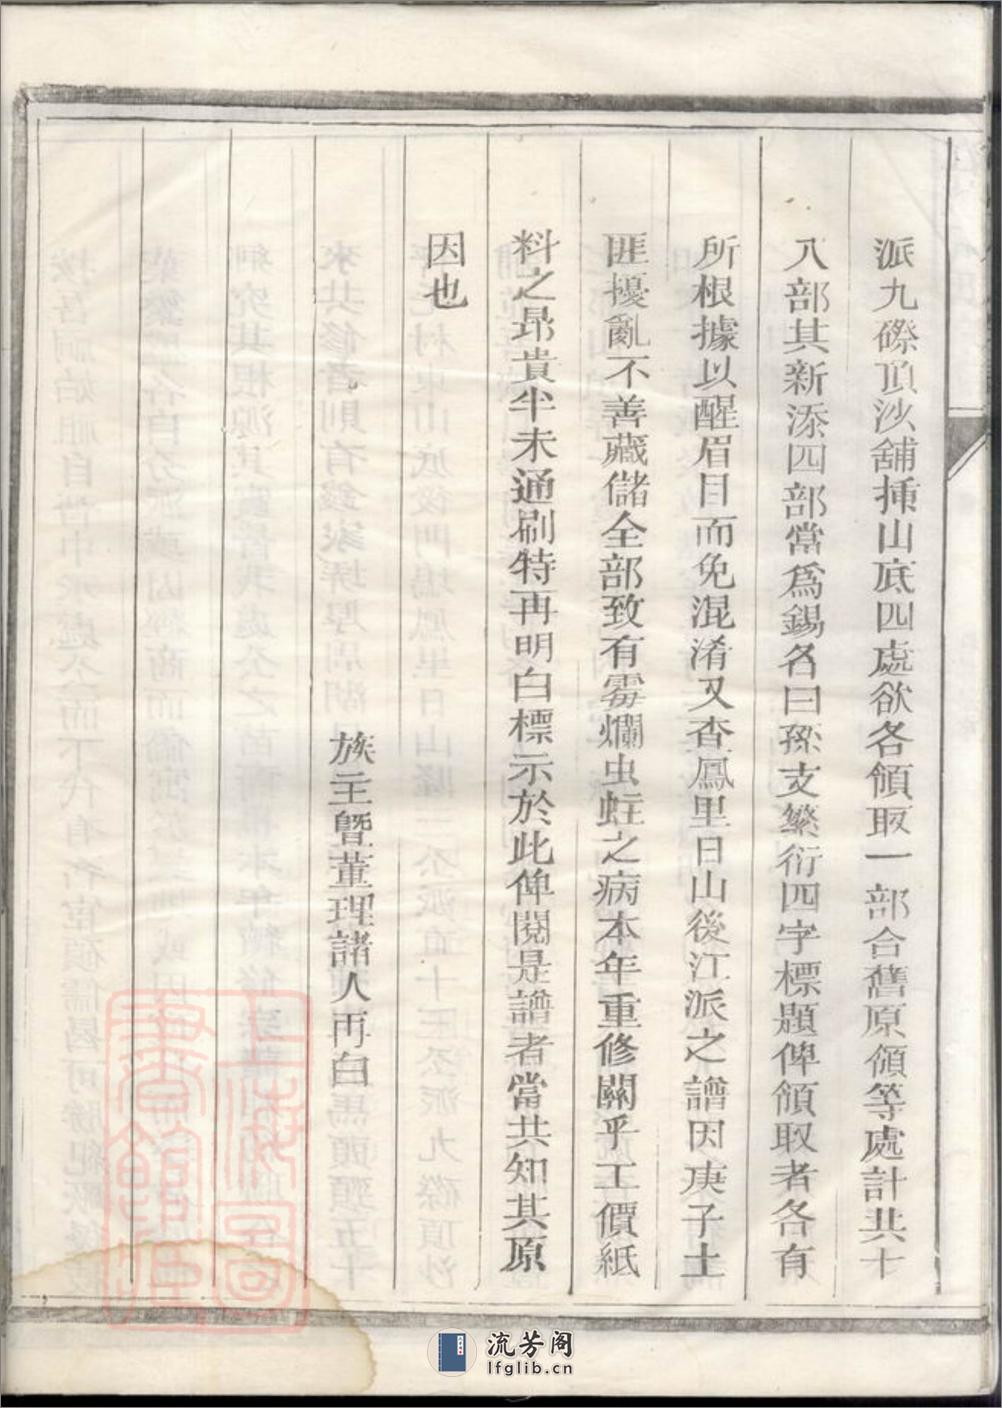 派九磜頂沙舖揷山底四處欲各領取一部合舊原領等處計共十
八部其新添四部當爲錫名曰孫支繁衍四字標題俾領取者各有
所根據以醒眉目而免混淆又杳鳳里日山後江派之譜因庚子土
匪擾亂不善藏儲全部致有霉爛虫蛀之病本年重修關乎工價紙
料之昻貴半未通刷特再明白標示於此俾閱是譜者當共知其原
因也
族主暨董理諸人再白
上海圖書館藏
流芳阁
lfglib.cn